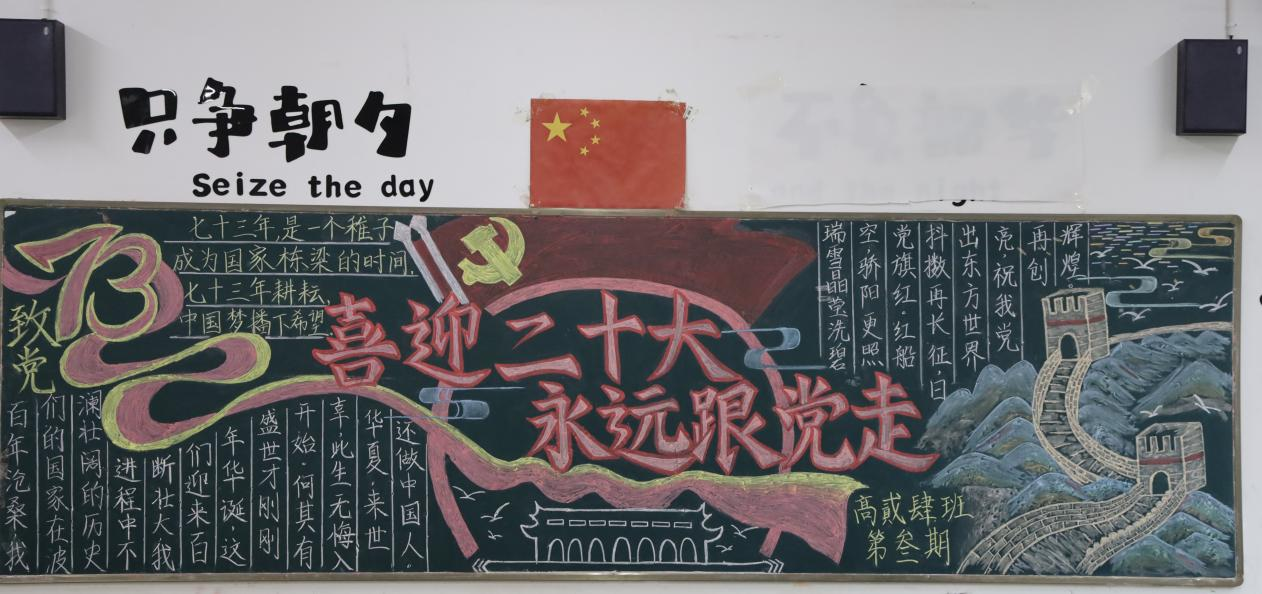 只争朝夕
Seize the day
73
七十三年,是一个稚子
成为国家栋梁的时间,
七十三年耕耘,
中国梦播下希望
致党
百年沧桑,我
们的国家在波
澜壮阔的历史
进程中不
断壮大,我
们迎来百
年华诞,这
盛世才刚刚
开始,何其有
幸,此生无悔入
华夏,来世
还做中国人。
喜迎二十大
永远跟党走
瑞雪晶莹洗碧
空,骄阳更照
党旗红,红船
抖擞再长征,日
出东方世界
亮,祝我党
再创
辉煌
高贰肆班
第叁期